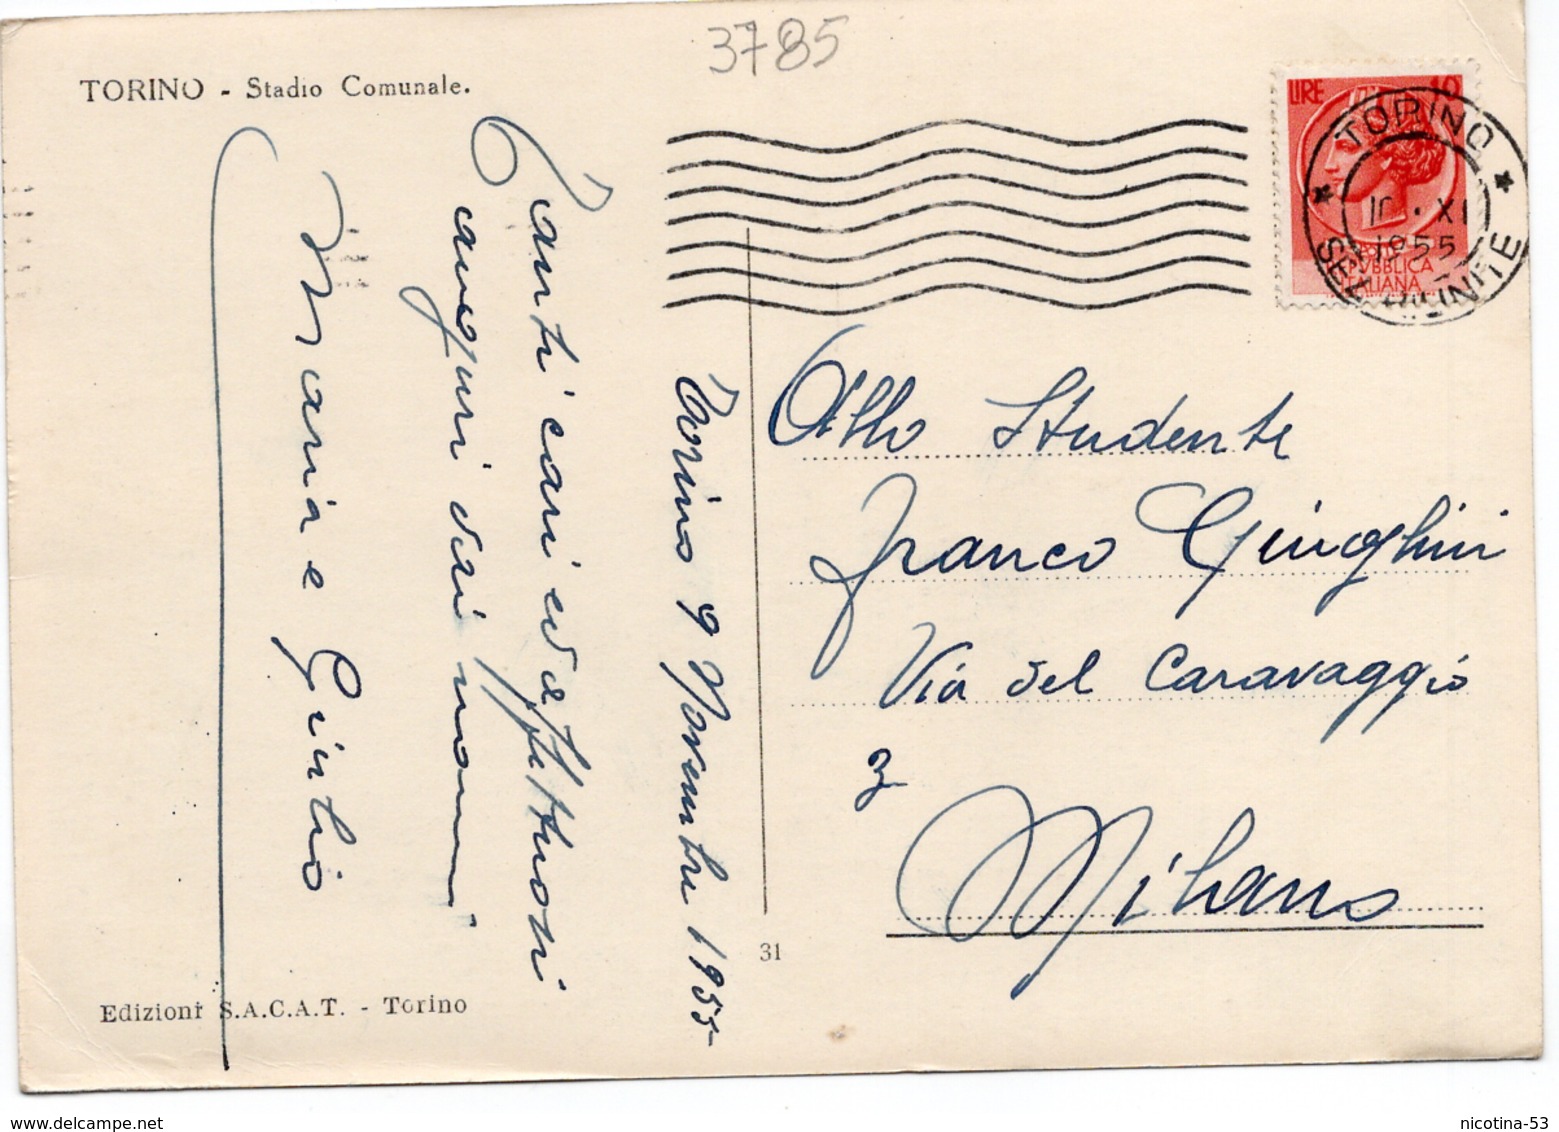 3785
TORINO - Stadio Comunale.
LIRE 10
POSTE
REPUBBLICA
ITALIANA
TORINO
10 · XI
1955
Torino 9 Novembre 1955
Tanti cari ed affettuosi
auguri dai nonni
Maria e Giulio
Allo Studente
Franco
Via del Caravaggio
3
Milano
31
Edizioni S.A.C.A.T. - Torino
nicotina-53